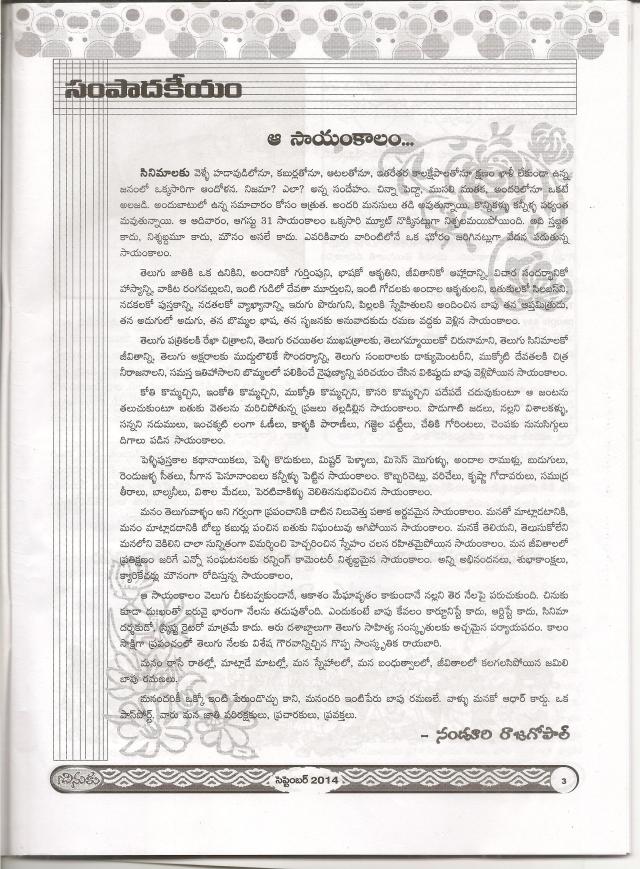 సంపాదకీయం
ఆ సాయంకాలం...
సినిమాలకు వెళ్ళే హడావుడిలోనూ, కబుర్లతోనూ, ఆటలతోనూ, ఇతరేతర కాలక్షేపాలతోనూ క్షణం ఖాళీ లేకుండా ఉన్న
జనంలో ఒక్కసారిగా ఆందోళన. నిజమా? ఎలా? అన్న సందేహం. చిన్నా పెద్దా, ముసలి ముతక, అందరిలోనూ ఒకటే
అలజడి. అందుబాటులో ఉన్న సమాచారం కోసం ఆత్రుత. అందరి మనసులు తడి అవుతున్నాయి. కొన్నికళ్ళు కన్నీళ్ళ పర్యంత
మవుతున్నాయి. ఆ ఆదివారం, ఆగస్టు 31 సాయంకాలం ఒక్కసారి మ్యూట్ నొక్కినట్టుగా నిశ్చలమయిపోయింది. అది స్తబ్ధత
కాదు, నిశ్శబ్దమూ కాదు, మౌనం అసలే కాదు. ఎవరికివారు వారింటిలోనే ఒక ఘోరం జరిగినట్టుగా వేదన పడుతున్న
సాయంకాలం.
తెలుగు జాతికి ఒక ఉనికిని, అందానికో గుర్తింపుని, భాషకో ఆకృతిని, జీవితానికో ఆహ్లాదాన్ని, విచార సందర్భానికో
హాస్యాన్ని, వాకిట రంగవల్లులని, ఇంటి గుడిలో దేవతా మూర్తులని, ఇంటి గోడలకు అందాల ఆకృతులని, బతుకులకో సిలబస్‌ని
నడకలకో పుస్తకాన్ని, నడతలకో వ్యాఖ్యానాన్ని, ఇరుగు పొరుగుని, పిల్లలకి స్నేహితులని అందించిన బాపు తన ఆప్తమిత్రుడు,
తన అడుగులో అడుగు, తన బొమ్మల భాష, తన సృజనకు అనువాదకుడు రమణ వద్దకు వెళ్లిన సాయంకాలం.
తెలుగు పత్రికలకి రేఖా చిత్రాలని, తెలుగు రచయితల ముఖపత్రాలకు, తెలుగమ్మాయిలకో చిరునామాని, తెలుగు సినిమాలకో
జీవితాన్ని, తెలుగు అక్షరాలకు ముద్దులొలికే సౌందర్యాన్ని, తెలుగు సంబరాలకు డాక్యుమెంటరీని, ముక్కోటి దేవతలకి చిత్ర
నీరాజనాలని, సమస్త ఇతిహాసాలని బొమ్మలలో పలికించే నైపుణ్యాన్ని పరిచయం చేసిన విశిష్టుడు బాపు వెళ్లిపోయిన సాయంకాలం.
కోతి కొమ్మచ్చిని, ఇంకోతి కొమ్మచ్చిని, ముక్కోతి కొమ్మచ్చిని, కొసరి కొమ్మచ్చిని పదేపదే చదువుకుంటూ ఆ జంటను
తలుచుకుంటూ బతుకు వెతలను మరిచిపోతున్న ప్రజలు తల్లడిల్లిన సాయంకాలం. పొడుగాటి జడలు, నల్లని విశాలకళ్లు,
సన్నని నడుములు, ఇంచక్కటి లంగా ఓణీలు, కాళ్లకి పారాణీలు, గజ్జెల పట్టీలు, చేతికి గోరింటలు, చెంపకు నునుసిగ్గులు
దిగాలు పడిన సాయంకాలం.
పెళ్ళిపుస్తకాల కథానాయికలు, పెళ్ళి కొడుకులు, మిష్టర్ పెళ్ళాలు, మిసెస్ మొగుళ్ళు, అందాల రాముళ్లు, బుడుగులు,
రెండుజళ్ల సీతలు, సీగాన పెసూనాంబలు కన్నీళ్ళు పెట్టిన సాయంకాలం. కొబ్బరిచెట్లు, వరిచేలు, కృష్ణా గోదావరులు, సముద్ర
తీరాలు, బాల్కనీలు, విశాల మేడలు, పెరటివాకిళ్లు వెలితిననుభవించిన సాయంకాలం.
మనం తెలుగువాళ్లం అని గర్వంగా ప్రపంచానికి చాటిన నిలువెత్తు పతాక అర్ధమైన సాయంకాలం. మనతో మాట్లాడటానికి,
మనం మాట్లాడడానికి బోల్డు కబుర్లు పంచిన బతుకు నిఘంటువు ఆగిపోయిన సాయంకాలం. మనకే తెలియని, తెలుసుకోలేని
మనలోని వెకిలిని చాలా సున్నితంగా విమర్శించి హెచ్చరించిన స్నేహం చలన రహితమైపోయిన సాయంకాలం. మన జీవితాలలో
ప్రతిక్షణం జరిగే ఎన్నో సంఘటనలకు రన్నింగ్ కామెంటరీ నిశ్శబ్దమైన సాయంకాలం. అన్ని అభినందనలు, శుభాకాంక్షలు,
క్యారికేచర్లు మౌనంగా రోదిస్తున్న సాయంకాలం,
ఆ సాయంకాలం వెలుగు చీకటవ్వకుండానే, ఆకాశం మేఘావృతం కాకుండానే నల్లని తెర నేలపై పరుచుకుంది. చినుకు
కూడా దుఃఖంతో బరువై భారంగా నేలను తడుపుతోంది. ఎందుకంటే బాపు కేవలం కార్టూనిస్టే కాదు, ఆర్టిస్టే కాదు, సినిమా
దర్శకుడో, స్క్రిప్టు రైటరో మాత్రమే కాదు. ఆరు దశాబ్దాలుగా తెలుగు సాహిత్య సంస్కృతులకు అచ్చమైన పర్యాయపదం. కాలం
సాక్షిగా ప్రపంచంలో తెలుగు నేలకు విశేష గౌరవాన్నిచ్చిన గొప్ప సాంస్కృతిక రాయబారి.
మనం రాసే రాతల్లో, మాట్లాడే మాటల్లో, మన స్నేహాలలో, మన బంధుత్వాలలో, జీవితాలలో కలగలసిపోయిన జమిలి
బాపు రమణలు.
మనందరికీ ఒక్కో ఇంటి పేరుండొచ్చు కాని, మనందరి ఇంటిపేరు బాపు రమణలే. వాళ్లు మనకో ఆధార్ కార్డు. ఒక
పాస్‌పోర్ట్. వారు మన జాతి పరిరక్షకులు, ప్రచారకులు, ప్రవక్తలు.
– నండూరి రాజగోపాల్
సెప్టెంబర్ 2014
3